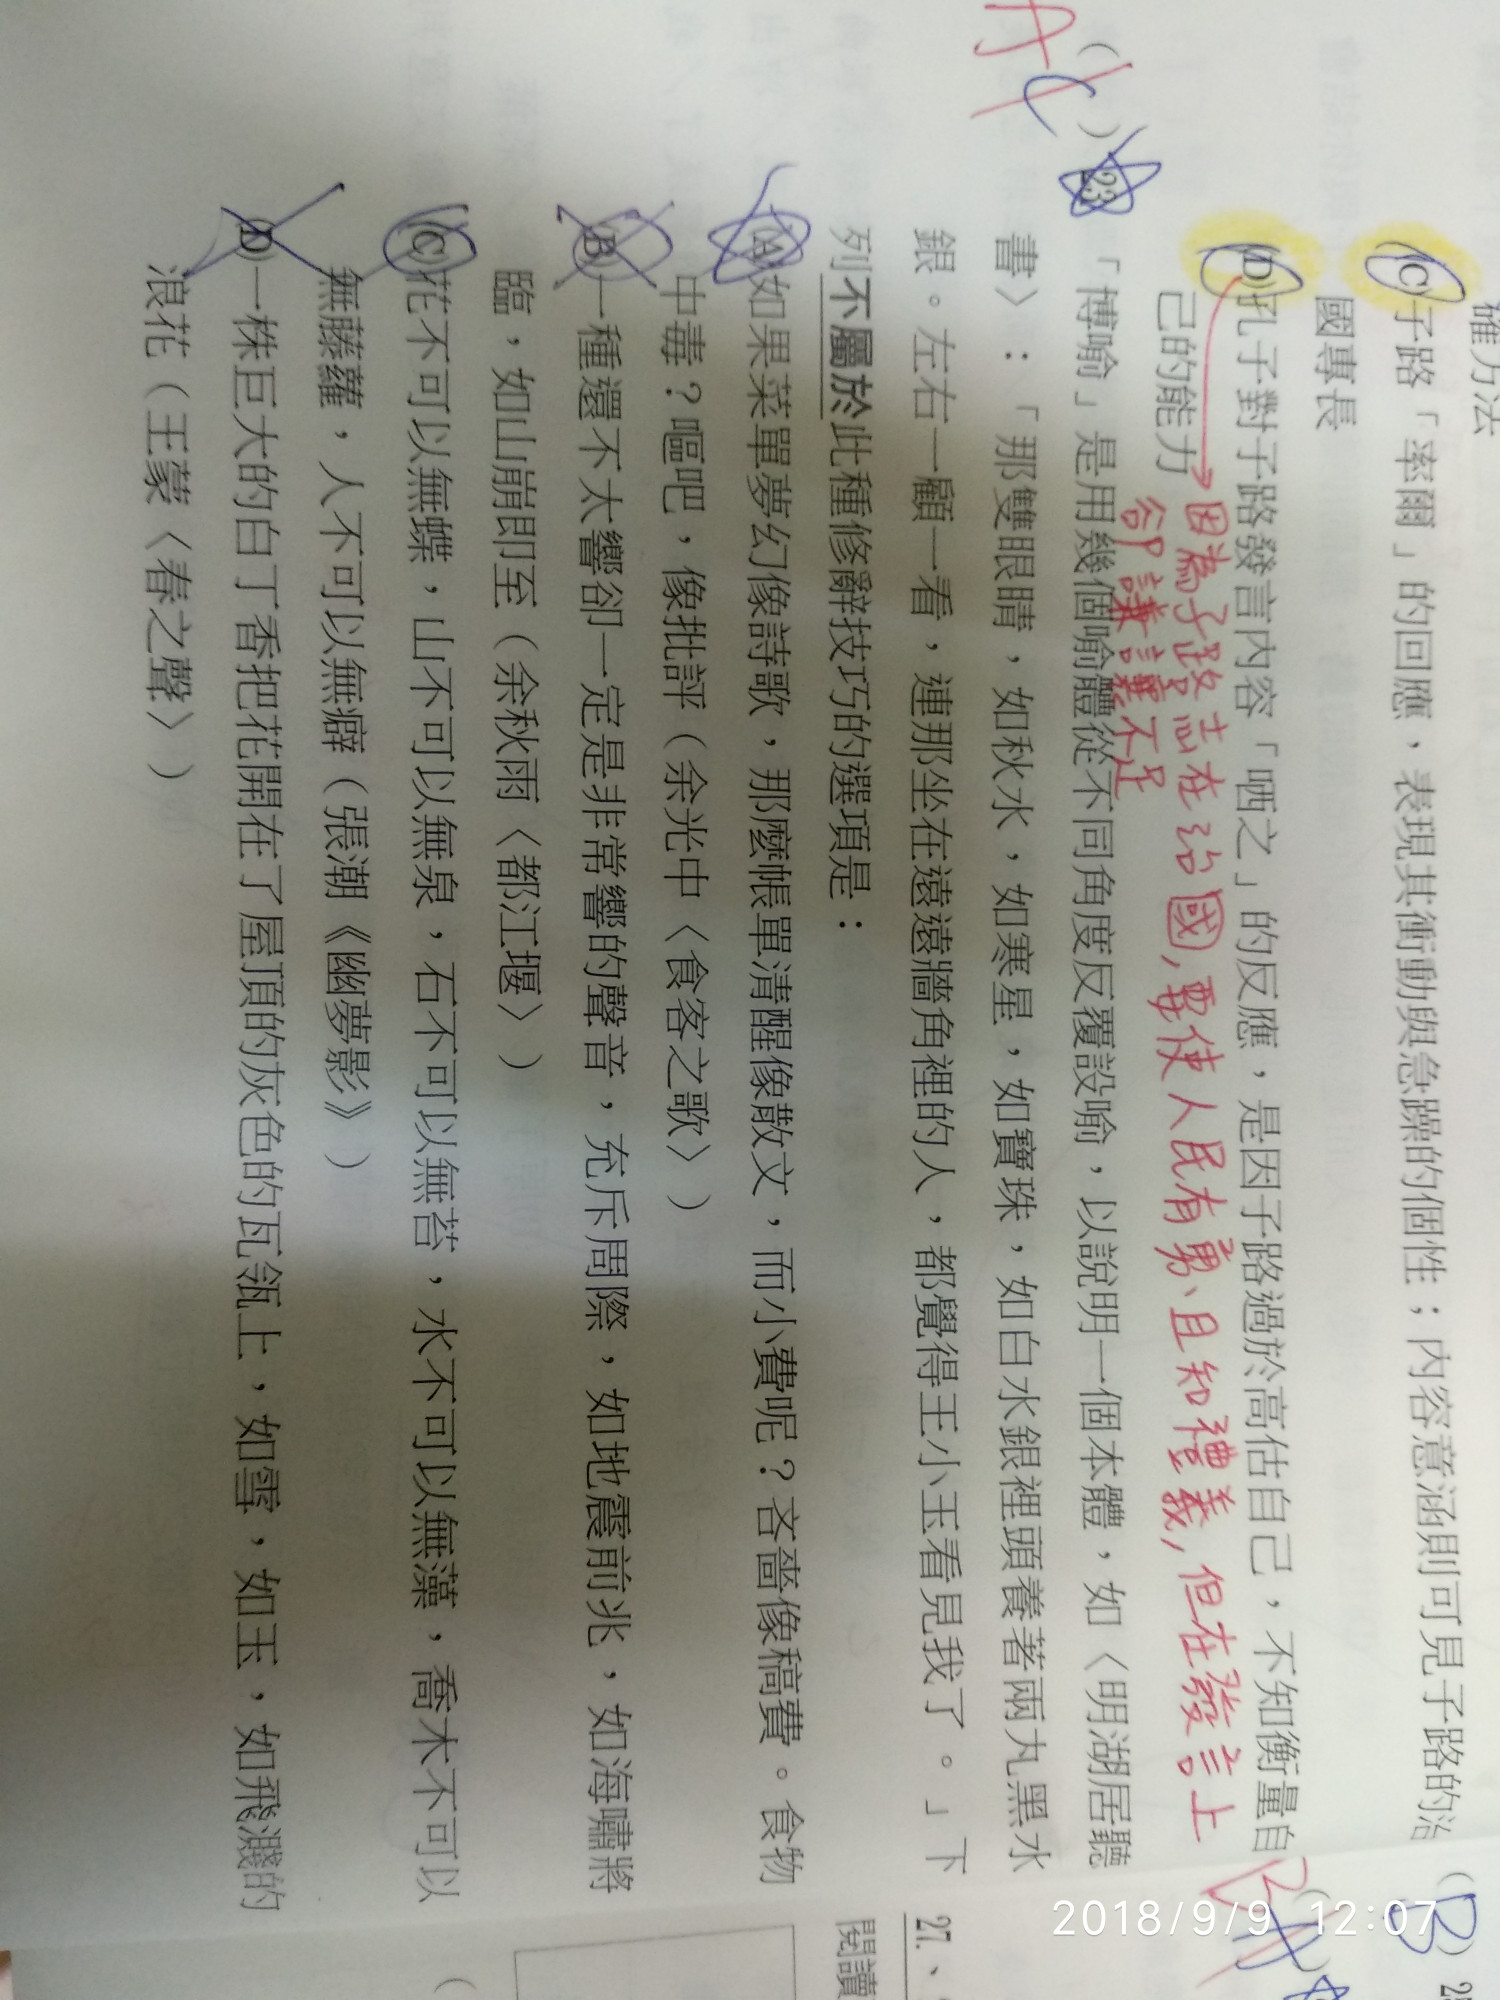 確方法
(C)子路「率爾」的回應，表現其衝動與急躁的個性；內容意涵則可見子路的治
國專長
(D)孔子對子路發言內容「哂之」的反應，是因子路過於高估自己，不知衡量自
己的能力
因為子路志在治國，要使人民有勇、且知禮義，但在發言上
卻謙讓不足
A
( C ) 23 「博喻」是用幾個喻體從不同角度反覆設喻，以說明一個本體，如〈明湖居聽
書〉：「那雙眼睛，如秋水，如寒星，如寶珠，如白水銀裡頭養著兩丸黑水
銀。左右一顧一看，連那坐在遠遠牆角裡的人，都覺得王小玉看見我了。」下
列不屬於此種修辭技巧的選項是：
(A)如果菜單夢幻像詩歌，那麼帳單清醒像散文，而小費呢？吝嗇像稿費。食物
中毒？嘔吧，像批評（余光中〈食客之歌〉）
(B)一種還不太響卻一定是非常響的聲音，充斥周際，如地震前兆，如海嘯將
臨，如山崩即至（余秋雨〈都江堰〉）
(C)花不可以無蝶，山不可以無泉，石不可以無苔，水不可以無藻，喬木不可以
無藤蘿，人不可以無癖（張潮《幽夢影》）
(D)一株巨大的白丁香把花開在了屋頂的灰色的瓦瓴上，如雪，如玉，如飛濺的
浪花（王蒙〈春之聲〉）
(B) 25
27、
閱讀
2018/9/9 12:07